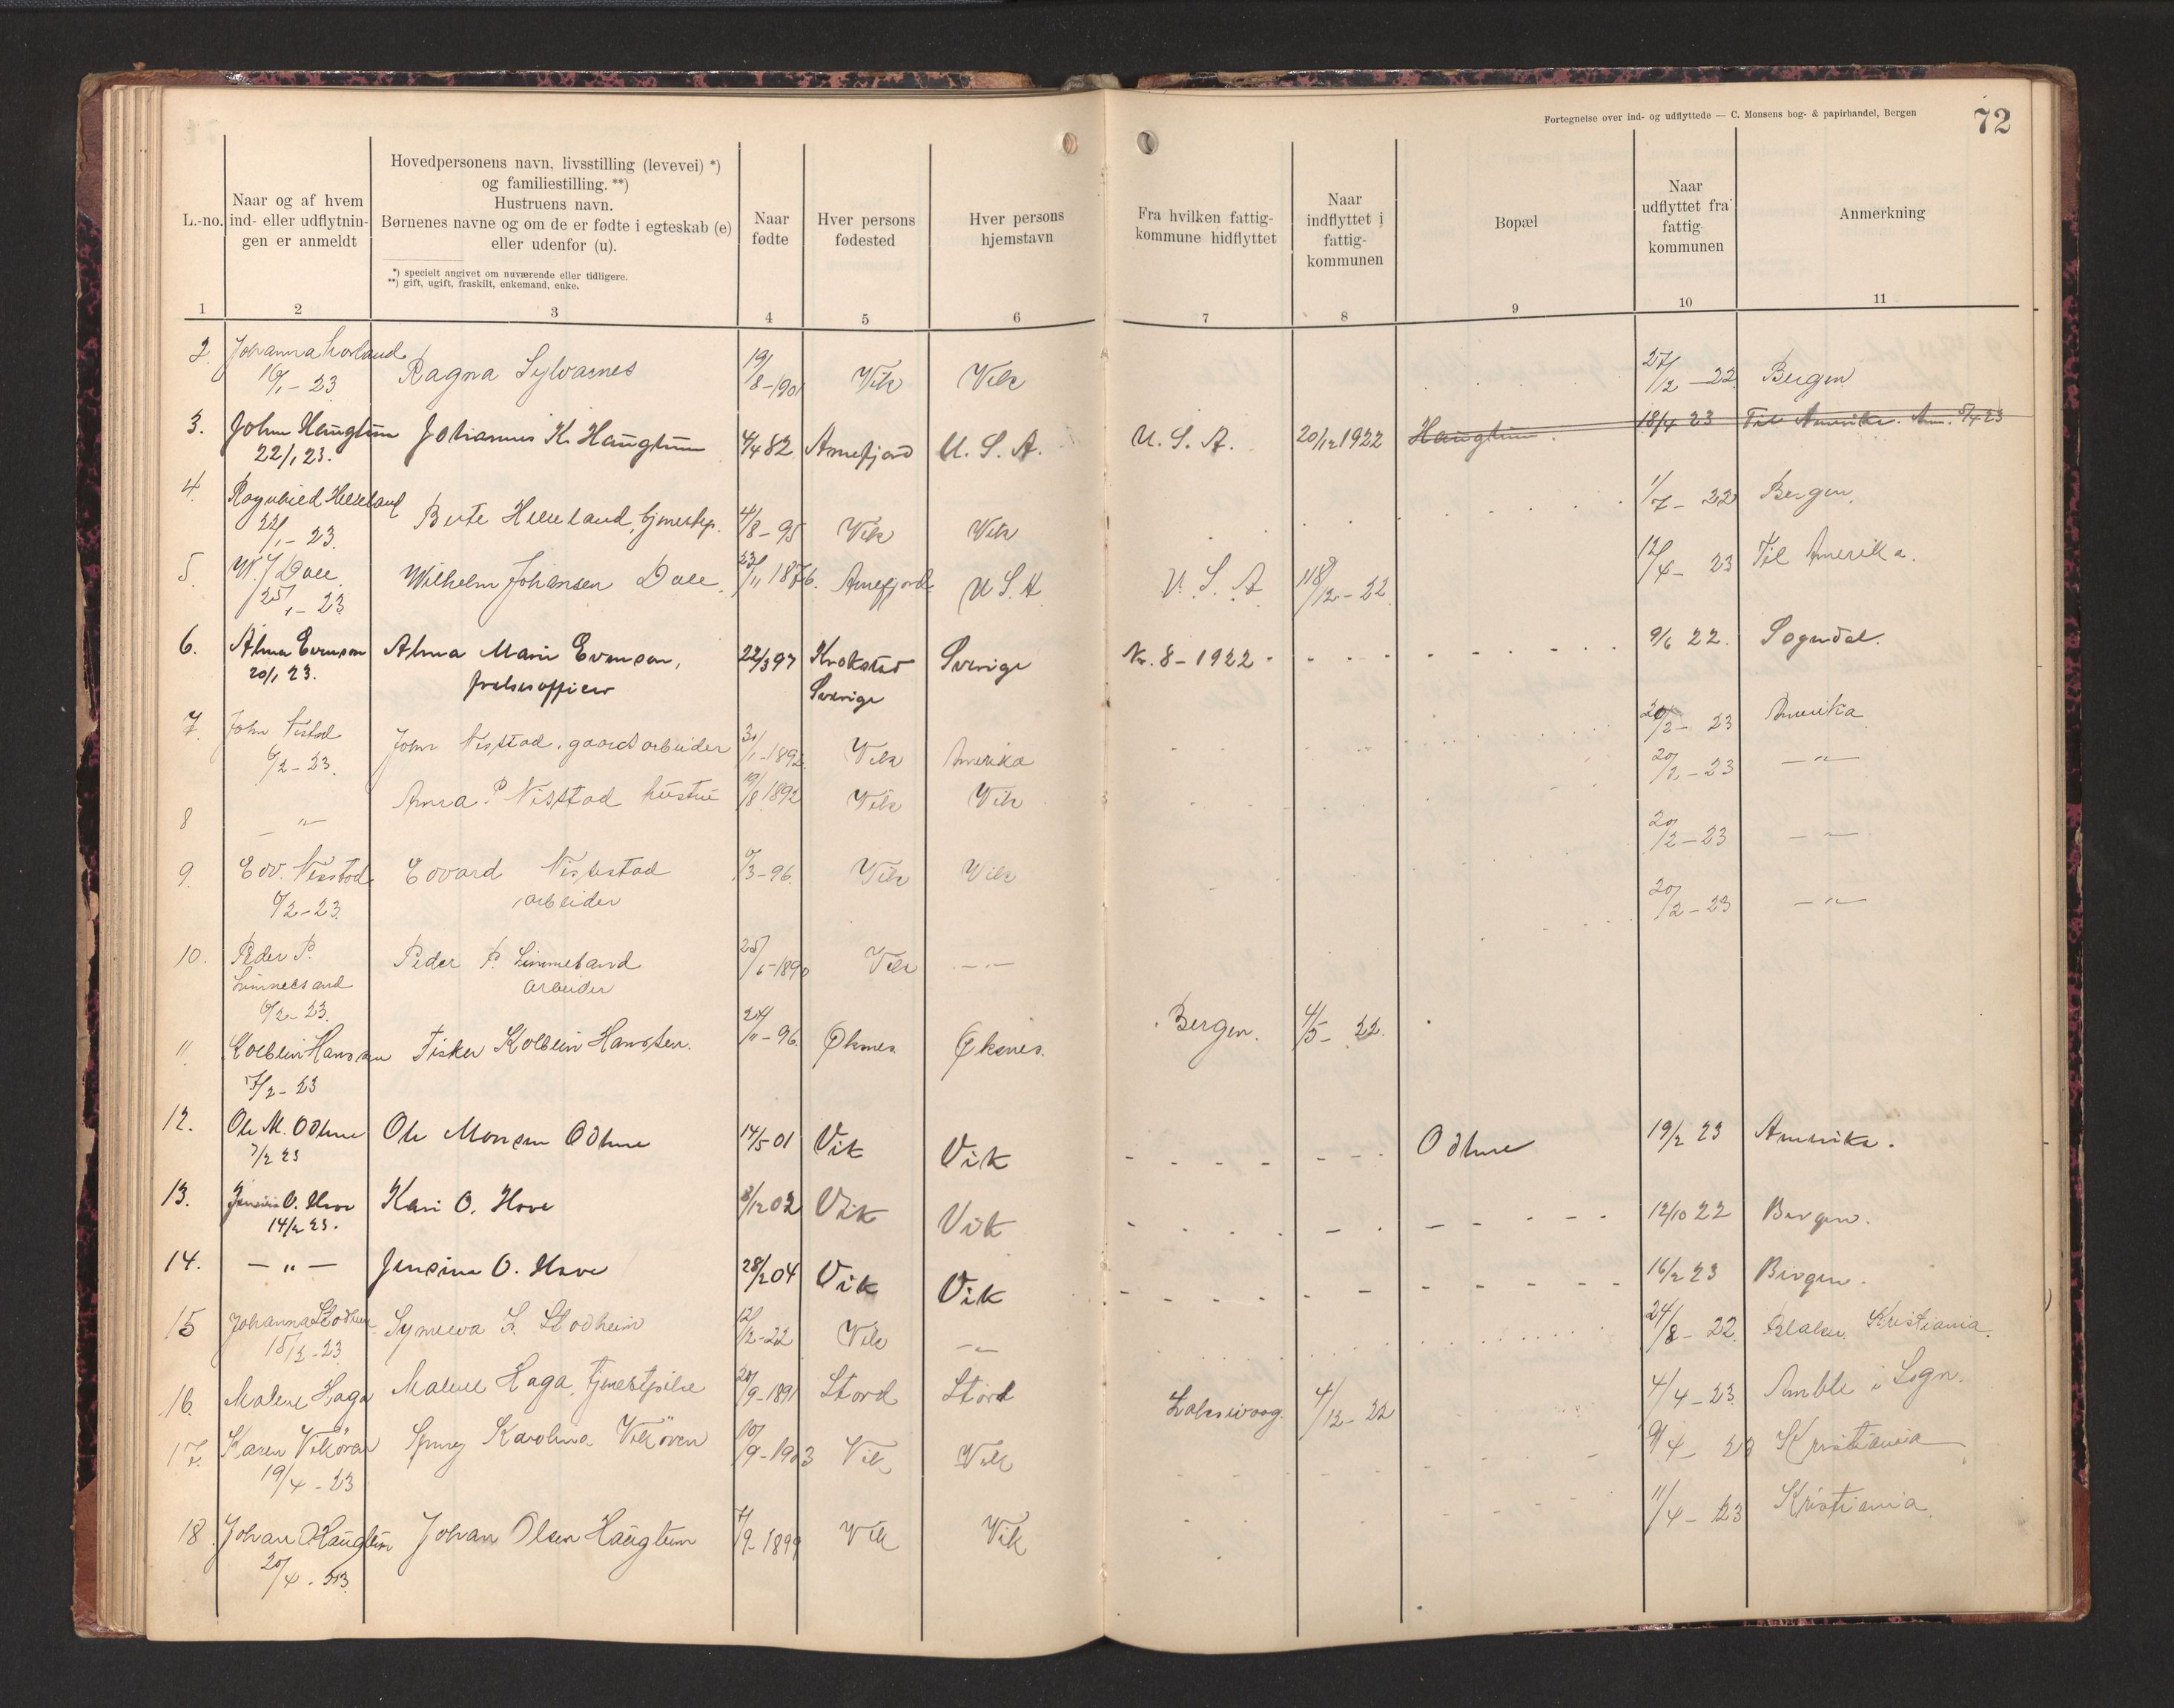 Fortegnelse over ind- og udflyttede — C. Monsens bog- & papirhandel, Bergen
72
L.-no.
Naar og af hvem
ind- eller udflytnin-
gen er anmeldt
Hovedpersonens navn, livsstilling (levevei) *)
og familiestilling. **)
Hustruens navn.
Børnenes navne og om de er fødte i egteskab (e)
eller udenfor (u).
*) specielt angivet om nuværende eller tidligere.
**) gift, ugift, fraskilt, enkemand, enke.
Naar
fødte
Hver persons
fødested
Hver persons
hjemstavn
Fra hvilken fattig-
kommune hidflyttet
Naar
indflyttet i
fattig-
kommunen
Bopæl
Naar
udflyttet fra
fattig-
kommunen
Anmerkning
1 2 3 4 5 6 7 8 9 10 11
2 Johanna Ragna Sylvarnes 19/8-1901 Vik Vik 27/12-22 Bergen
16/1-23
3. John Haugtun Johannes K. Haugtun 4/4 82 Arnefjord U. S. A. U. S. A. 20/12 1922 Haugtun 18/4 23 Til Amerika. 5/4 23
22/1 23.
4. Ragnhild Helleland Berte Helleland, tjenestep. 4/8-95 Vik Vik 1/7-22 Bergen.
22/1-23.
5. W. J Dale Wilhelm Johansen Dale. 23/11 1876. Arnefjord U S A U. S. A 18/12-22 12/4-23 Til Amerika.
25/1-23
6. Alma Evenson Alma Marie Evenson, 22/3 97 Krokstad Sverige Nr. 8-1922 9/6 22. Sogndal.
20/1 23. frelsesofficer Sverige
7. John Nistad John Nisstad, gaardsarbeider 30/1-1892 Vik Amerika 20/2-23 Amerika
6/2-23. 20/2-23 — " —
8 — " — Anna P Nisstad hustru 19/8 1892 Vik Vik 20/2-23 — " —
9. Edv. Nisstad Edvard Nisstad 6/3-96. Vik Vik 20/2-23 — " —
6/2-23. arbeider
10. Peder P. Peder P. Limmesand 25/6-1890 Vik — " —
Limmesand arbeider
6/2-23.
11 Kolbein Hansen Fisker Kolbein Hansen. 24/11-96. Øksnes Øksnes. Bergen. 4/5-22.
7/2-23
12. Ole M. Odhne Ole Monsen Odhne 14/5 01 Vik Vik Odhne 19/2 23 Amerika.
7/2 23
13. Jensine O. Hove Kari O. Hove 8/12 02 Vik Vik 12/10 22 Bergen.
14/2 23.
14. — " — Jensine O. Hove 28/2 04 Vik Vik 16/2 23 Bergen.
15 Johanna Stodheim Synneva L. Stodheim 12/2-22 Vik — " — 24/8-22. Blaker Kristiania.
15/2-23
16. Malene Haga Malene Haga, tjenestpike 20/9-1891 Stord Stord Laksevaag. 4/12-22 4/4-23 Amble i Sogn.
17. Karen Vikøren Karolina Vikøren 10/9-1903 Vik Vik 9/4-23 Kristiania
19/4-23
18. Johan Haugtun Johan Olsen Haugtun 7/9-1899 Vik Vik 11/4-23 Kristiania
20/4-23.